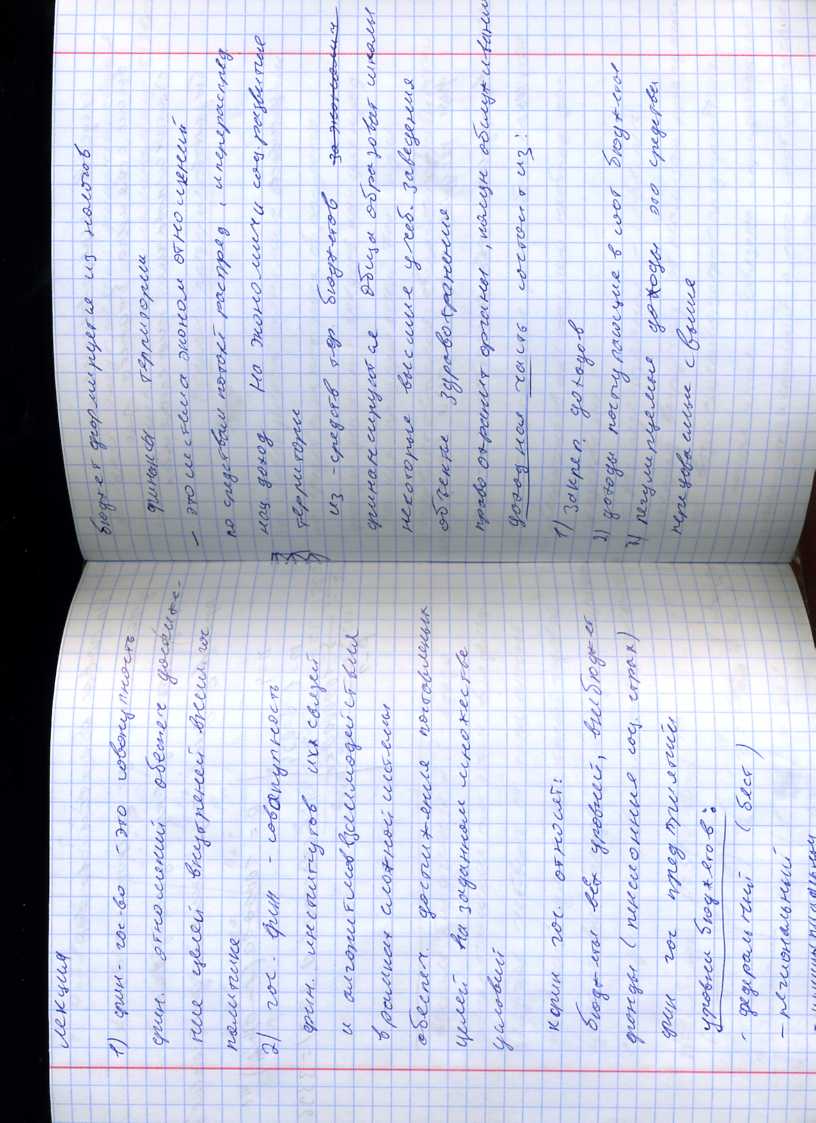 лекция
1) фин- гос-во - это совокупность
фин. отношений обеспеч достиже-
ние целей внутреней внеш гос
политике
2) гос. фин - совокупность
фин. институтов их связей
и алгоритмов взаимодействия
в рамках сложной системы
обеспеч достижение поставленых
целей на заданном множестве
условий
к фин гос. относят:
бюджеты всех уровней, внебюджет
фонды (пенсионные соц. страх)
фин гос предприятий
уровни бюджетов:
- федеральный (бест)
- региональный
бюджет формируется из налогов
финансы территории
- это система эконом отношений
по средствам которой распред. и перераспред
нац доход на экономич и соц развитие
территории
из-средств тер бюджетов
финансируются общеобразоват школы
некоторые высшие учеб. заведения
объекты здравохранения
право охранит органы, комун обслуживани
доходная часть состоит из:
1) закреп. доходов
2) доходы поступающие в соот бюджетов
3) регулируемые доходы это средства
передаваемые свыше